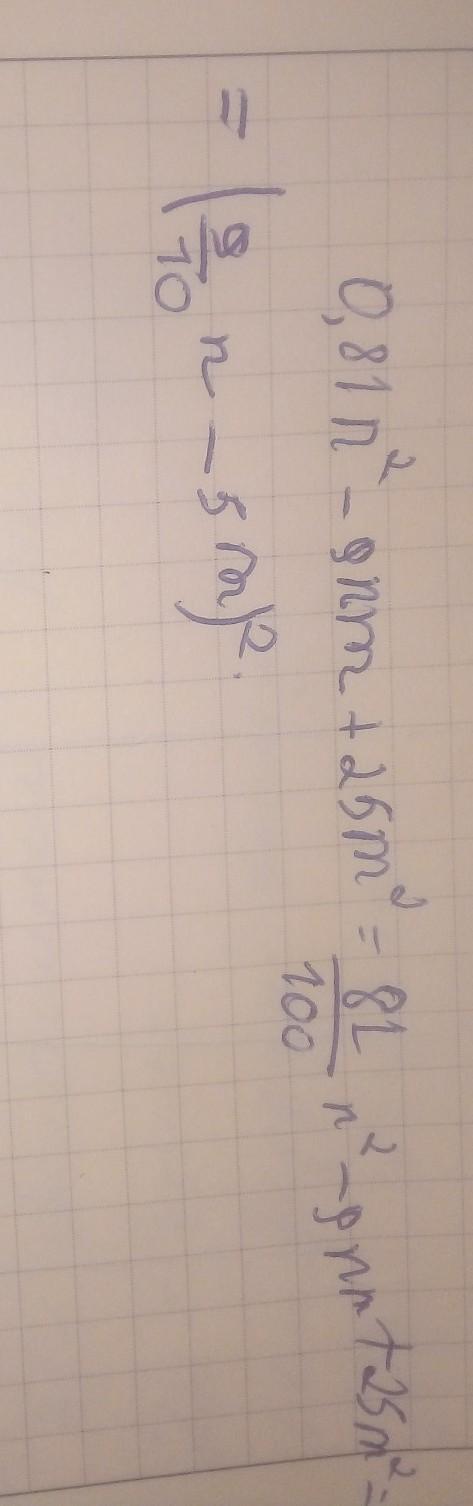 0,81n² - 9nm + 25m² = 81/100 n² - 9nm + 25m² =
= (9/10 n - 5m)².